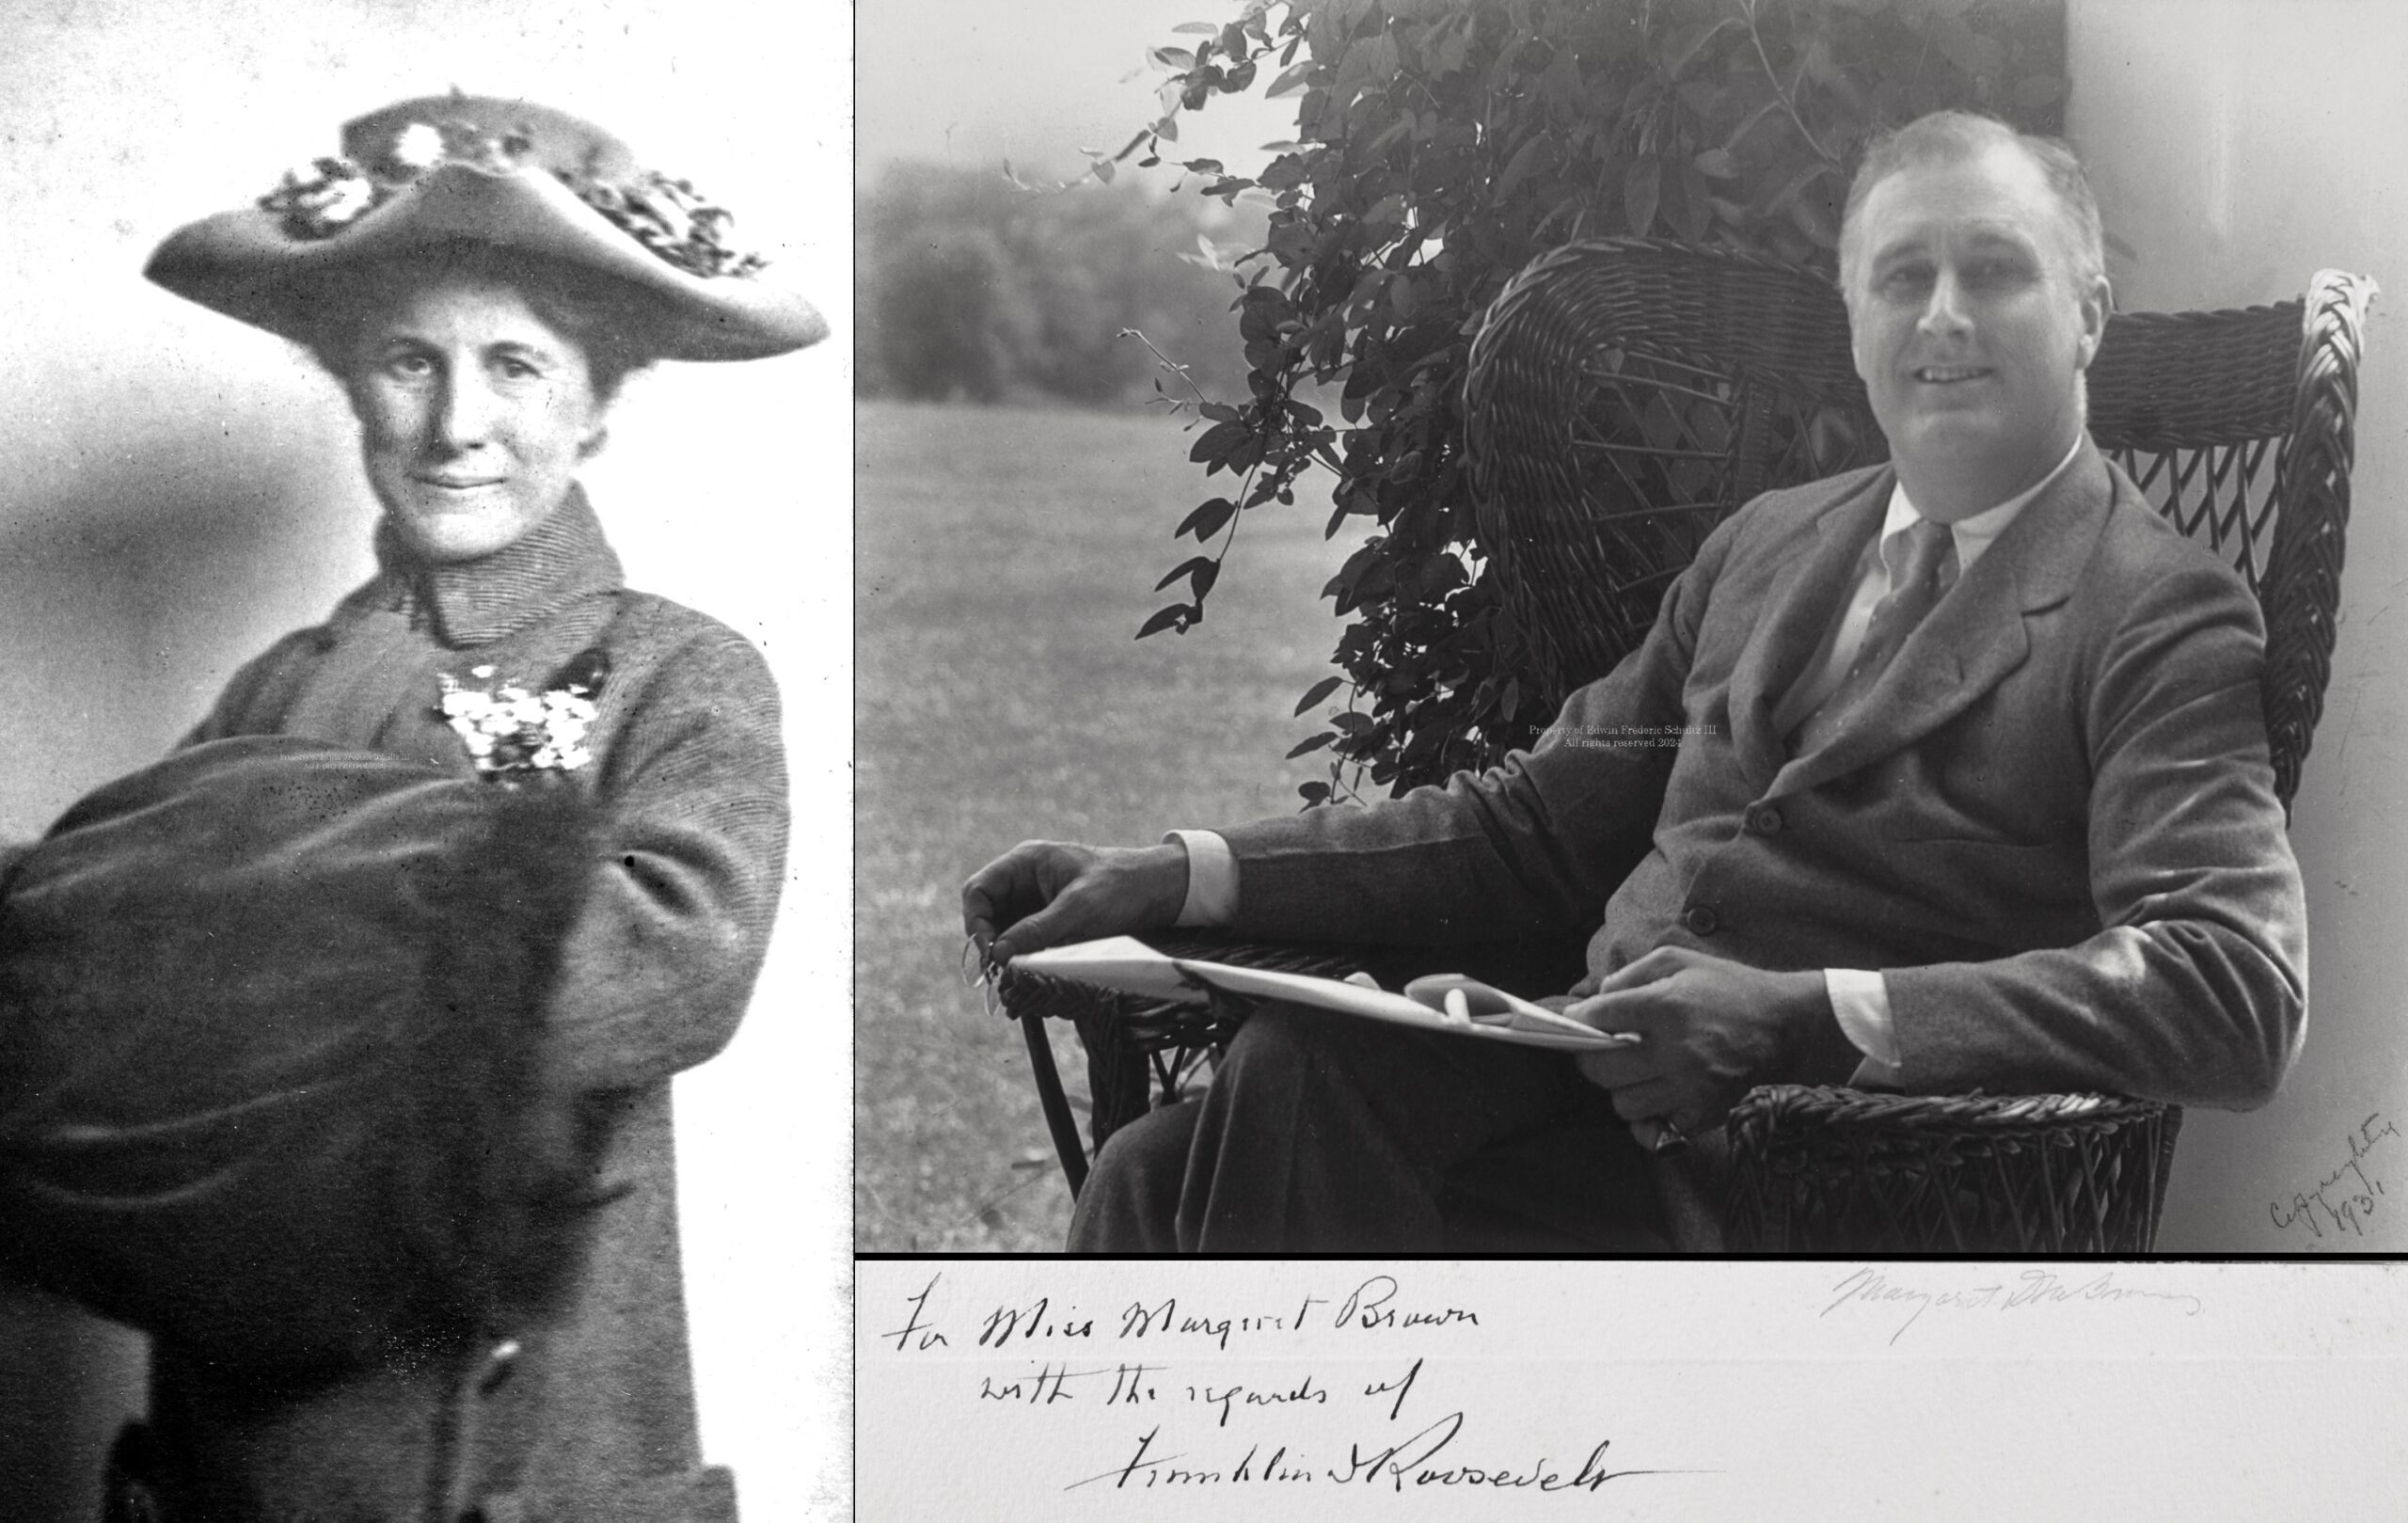 Property of Edwin Frederic Schultz III
All rights reserved 2024
Copyright
1931
For Miss Margaret Brown
with the regards of
Franklin D Roosevelt
Margaret